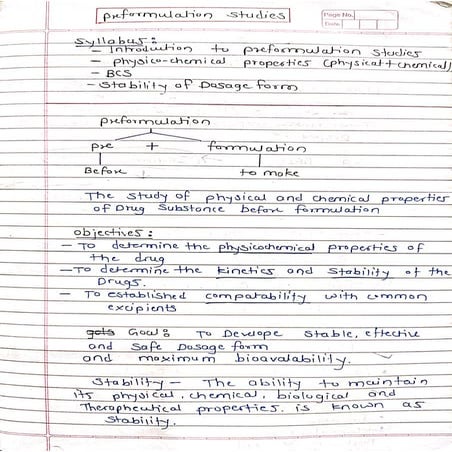 preformulation studies
Page No.
Date
Syllabus:
- Introduction to preformulation studies
- physico-chemical properties (physical+chemical)
- BCS
- Stability of Dosage form
preformulation
pre + formulation
Before to make
The study of physical and chemical properties
of Drug Substance before formulation
objectives:
- To determine the physicochemical properties of
the drug
- To determine the kinetics and stability of the
Drugs.
- To established compatability with common
excipients
Goal: To Develope stable, effective
and safe Dosage form
and maximum bioavalability.
Stability - The ability to maintain
its physical, chemical, biological and
Therapheutical properties. is known as
stability.